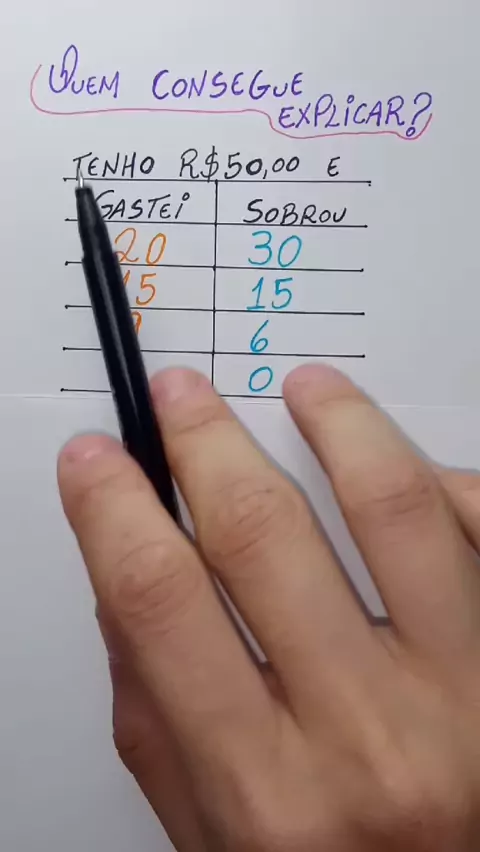 QUEM CONSEGUE
EXPLICAR?
TENHO R$50,00 E
GASTEI SOBROU
20 30
15 15
6
0